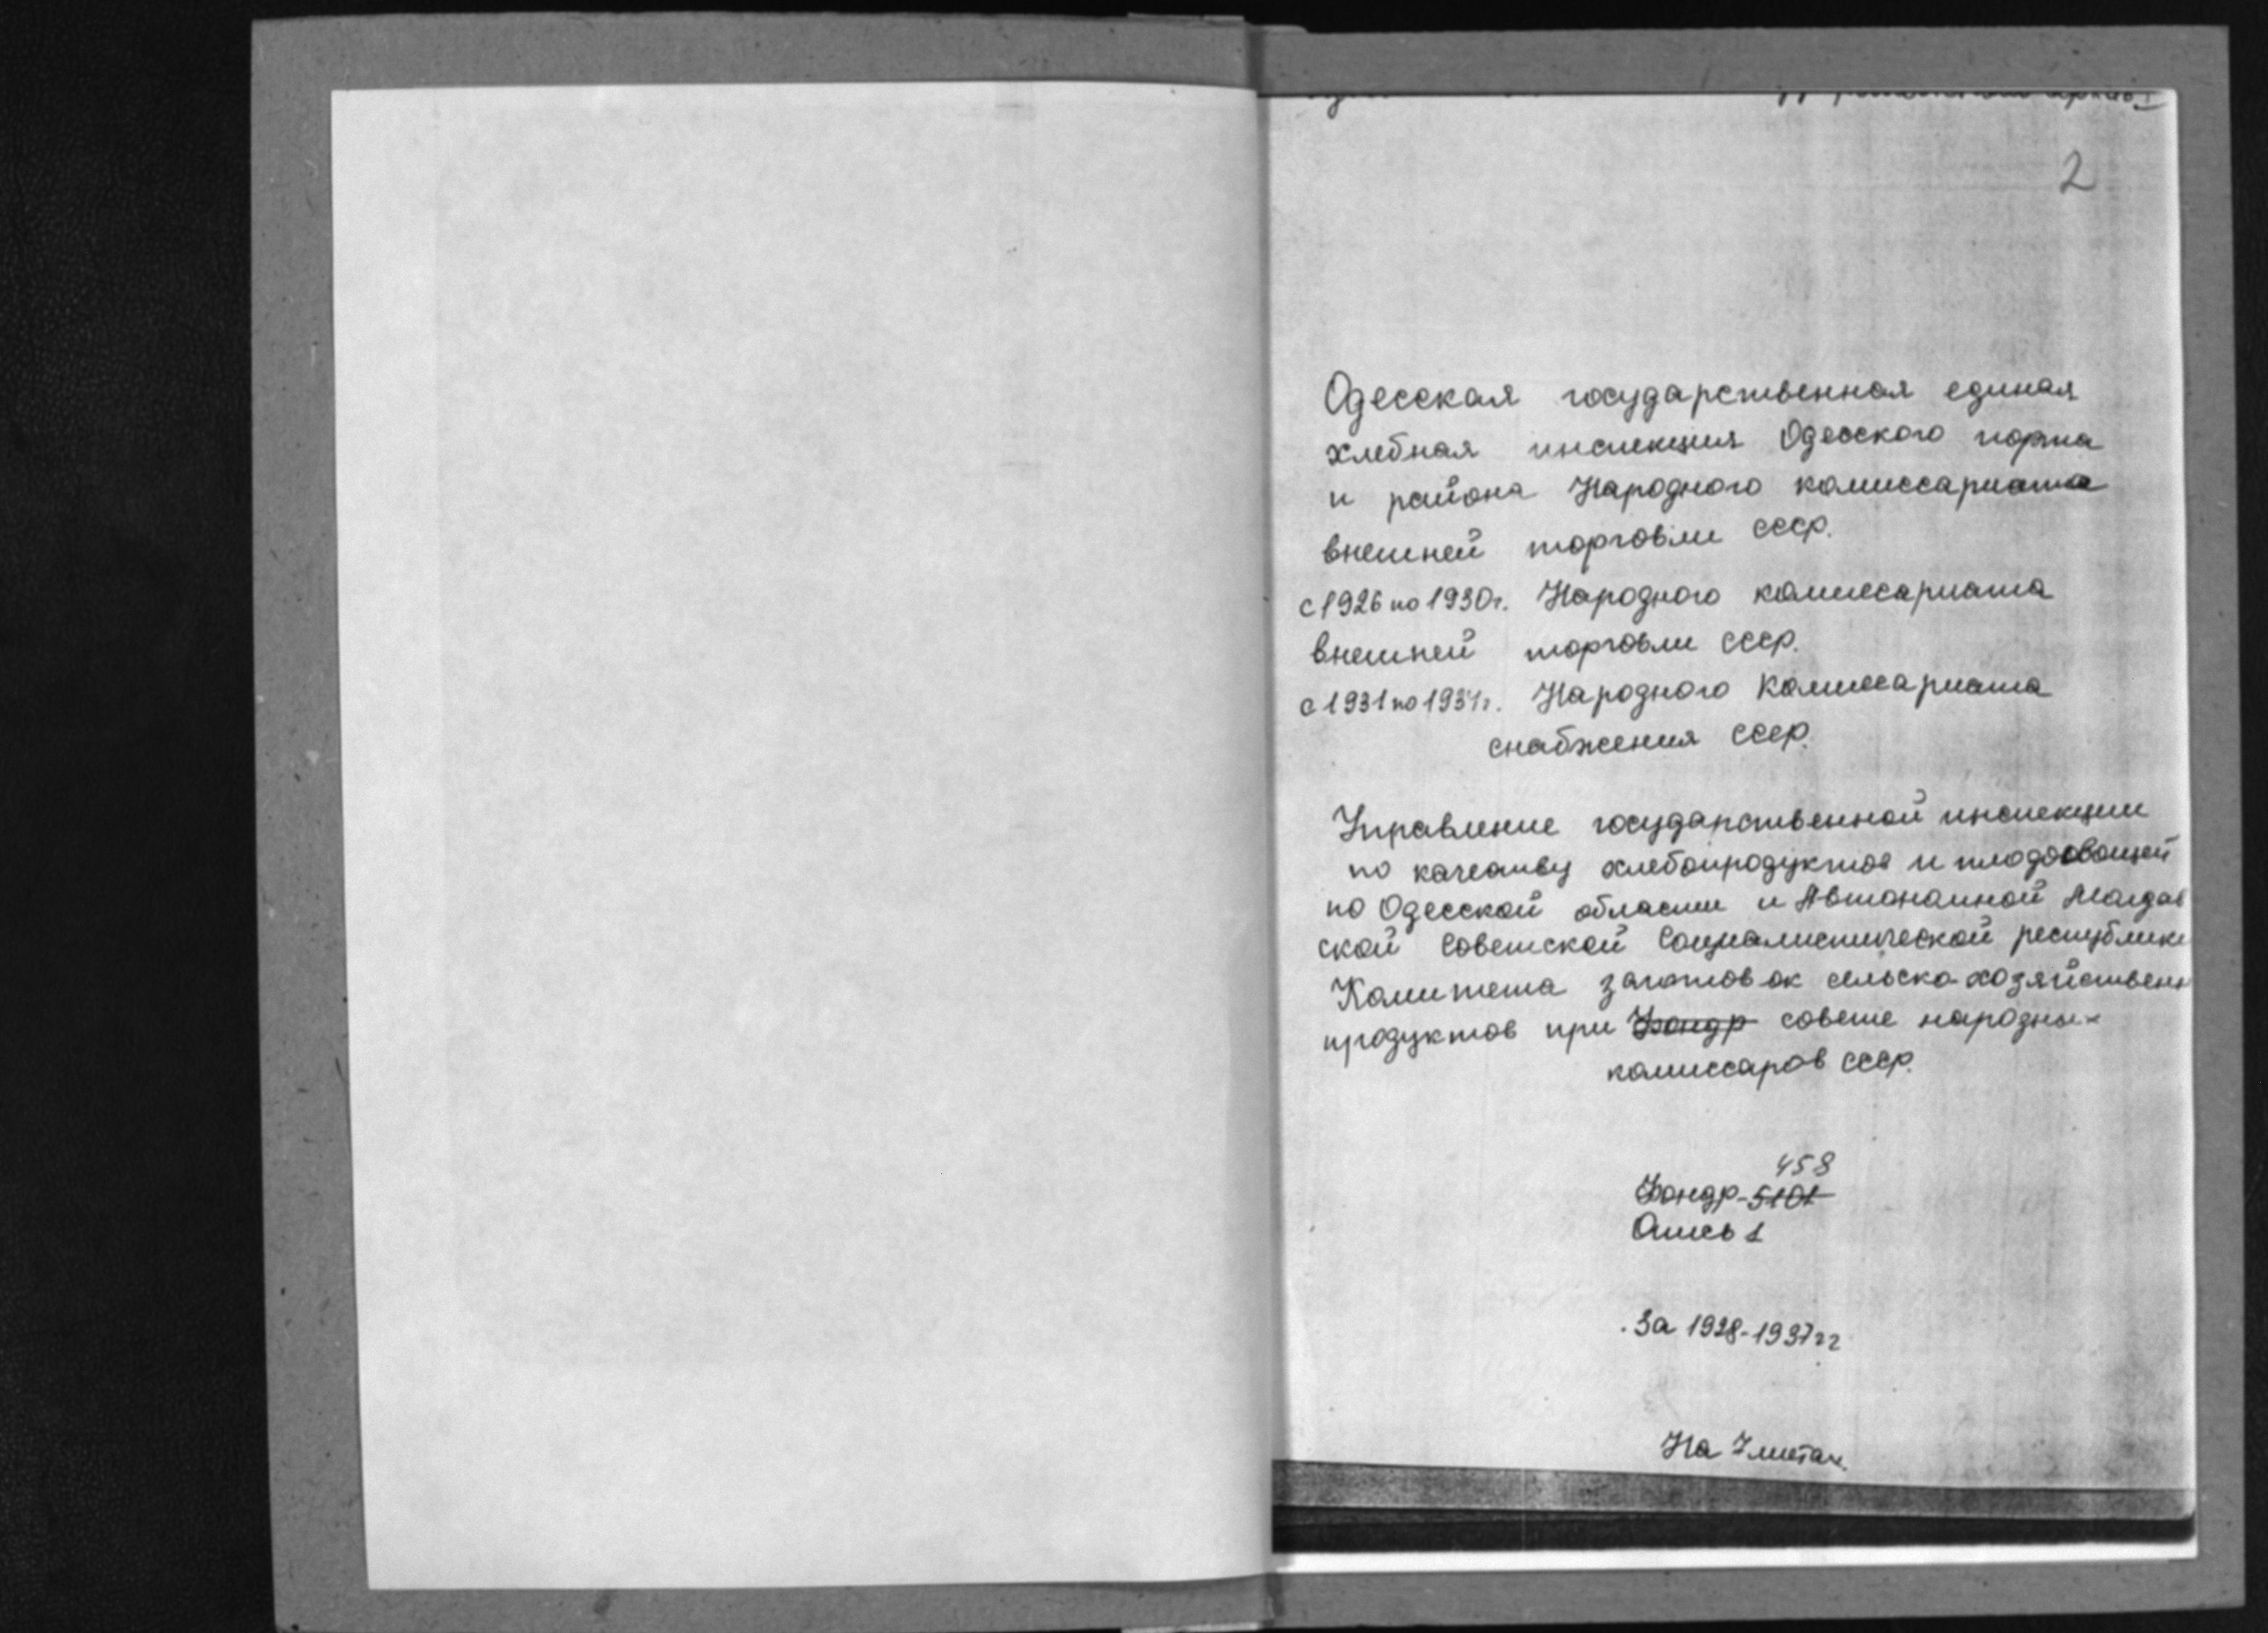 2
Одесская государственная единая
хлебная инспекция Одесского порта
и района Народного комиссариата
внешней торговли СССР.
с 1926 по 1930г. Народного комиссариата
внешней торговли СССР.
с 1931 по 1934г. Народного Комиссариата
снабжения СССР.
Управление государственной инспекции
по качеству хлебопродуктов и плодоовощей
по Одесской области и Автономной Молдав
ской Советской Социалистической республике
Комитета заготовок сельско-хозяйственн
продуктов при Фондр совете народных
комиссаров СССР.
458
Фондр-5101
Опись 1
За 1928-1937гг
На 7 листах.